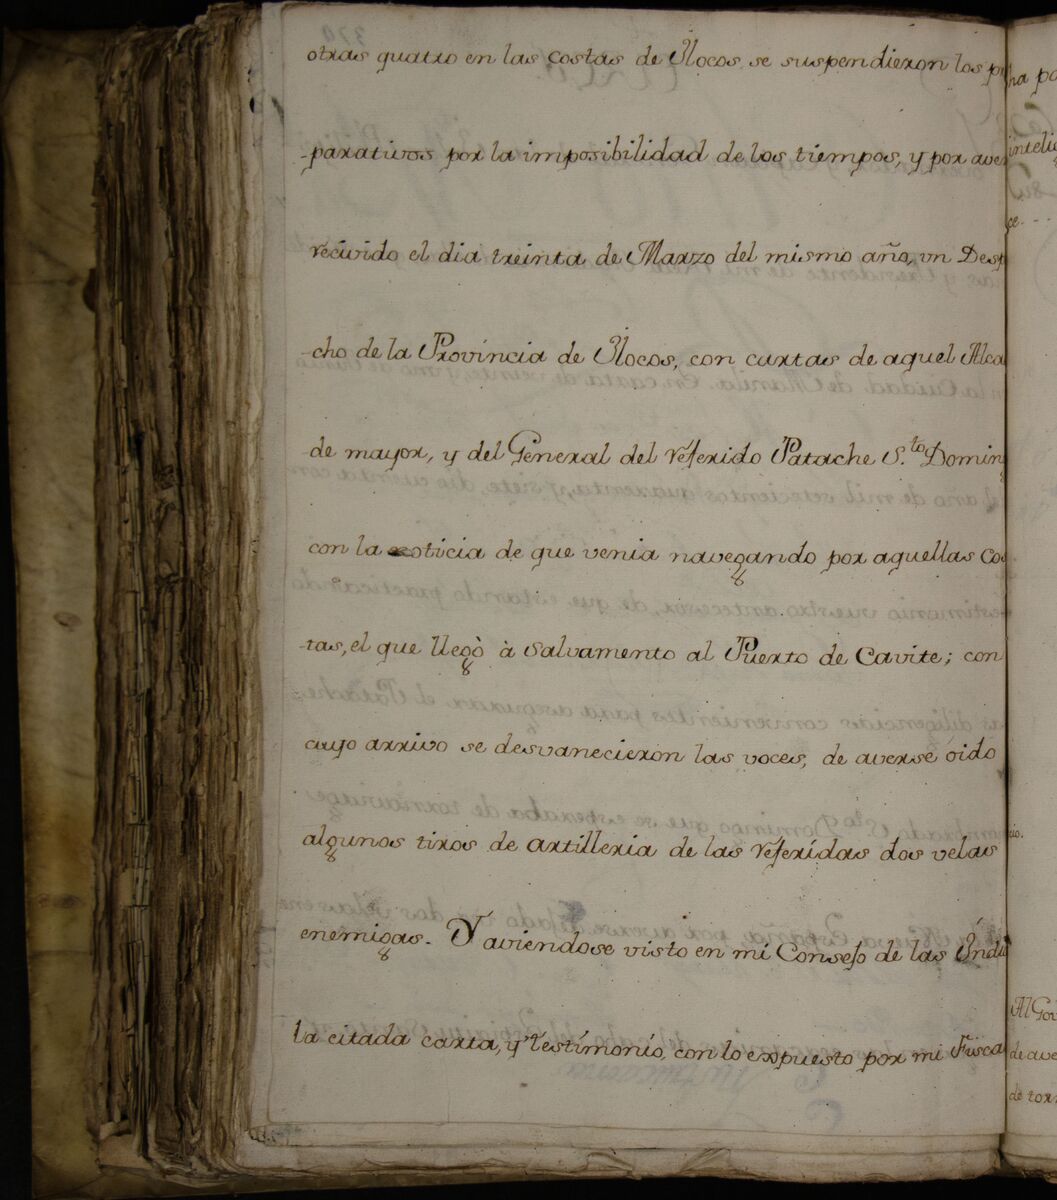 otras quatro en las costas de Ylocos, se suspendieron los pr
-parativos por la imposibilidad de los tiempos, y por aver
recivido el dia treinta de Marzo del mismo año, un Desp
-cho de la Provincia de Ylocos, con cartas de aquel Alca
de mayor, y del General del referido Patache S.to Doming
con la noticia de que venia navegando por aquellas Cos
-tas, el que llegò à salvamento al Puerto de Cavite; con
cuyo arrivo se desvanecieron las voces, de averse oido
algunos tiros de artilleria de las referidas dos velas
enemigas. Y aviendose visto en mi Consejo de las Yndi
la citada carta, y testimonio, con lo expuesto por mi Fisca
ha po
inteli
ce.
Al Gov
de ave
de tor